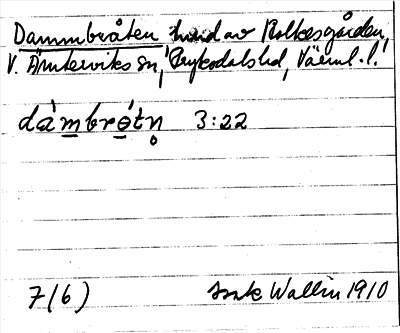 Dammbråten hmd av Kolkesgården,
V. Ämterviks sn, Fryksdals hd, Värml. l.
dàmbrǿtn̥ 3:22
7(6) Wallin 1910